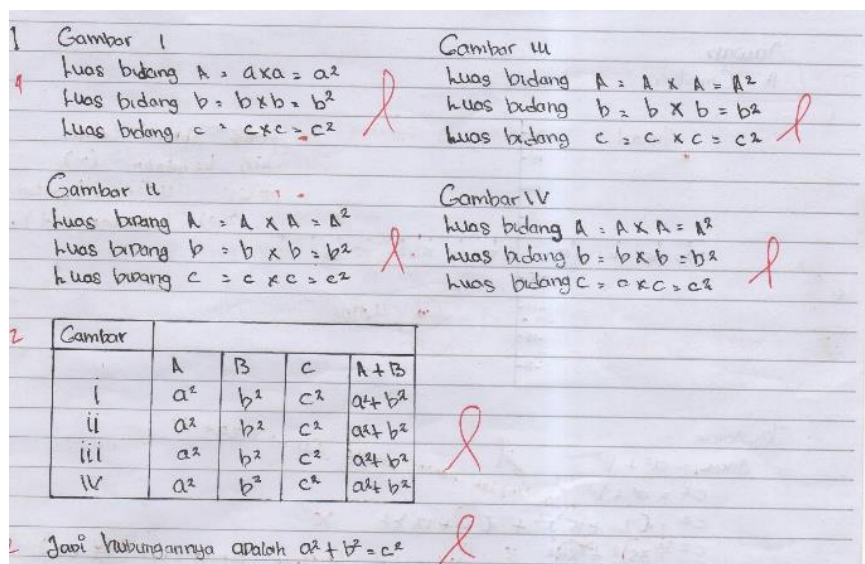 1 Gambar I
Luas bidang A = axa = a²
Luas bidang b = bxb = b²
Luas bidang c = cxc = c²
4
Gambar II
Luas bidang A = A x A = A²
Luas bidang b = b x b = b²
Luas bidang c = c x c = c²
Gambar III
Luas bidang A = A x A = A²
Luas bidang b = b x b = b²
Luas bidang c = c x c = c²
Gambar IV
Luas bidang A = A x A = A²
Luas bidang b = b x b = b²
Luas bidang c = c x c = c²
2 Gambar
A B C A + B
i a² b² c² a² + b²
ii a² b² c² a² + b²
iii a² b² c² a² + b²
IV a² b² c² a² + b²
Jadi hubungannya adalah a² + b² = c²